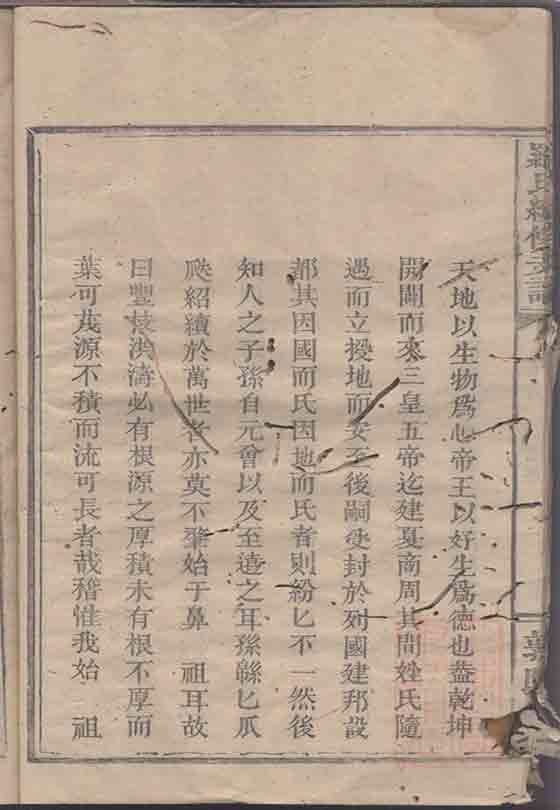 羅氏續修支譜
天地以生物爲心帝王以好生爲德也葢乾坤
開闢而來三皇五帝迄建夏商周其間姓氏隨
遇而立授地而安至後嗣受封於列國建邦設
都其因國而氏因地而氏者則紛匕不一然後
知人之子孫自元會以及至遠之耳孫緜匕瓜
瓞紹續於萬世者亦莫不肇始于鼻 祖耳故
曰豐枝洪濤必有根源之厚積未有根不厚而
葉可茂源不積而流可長者哉稽惟我始 祖